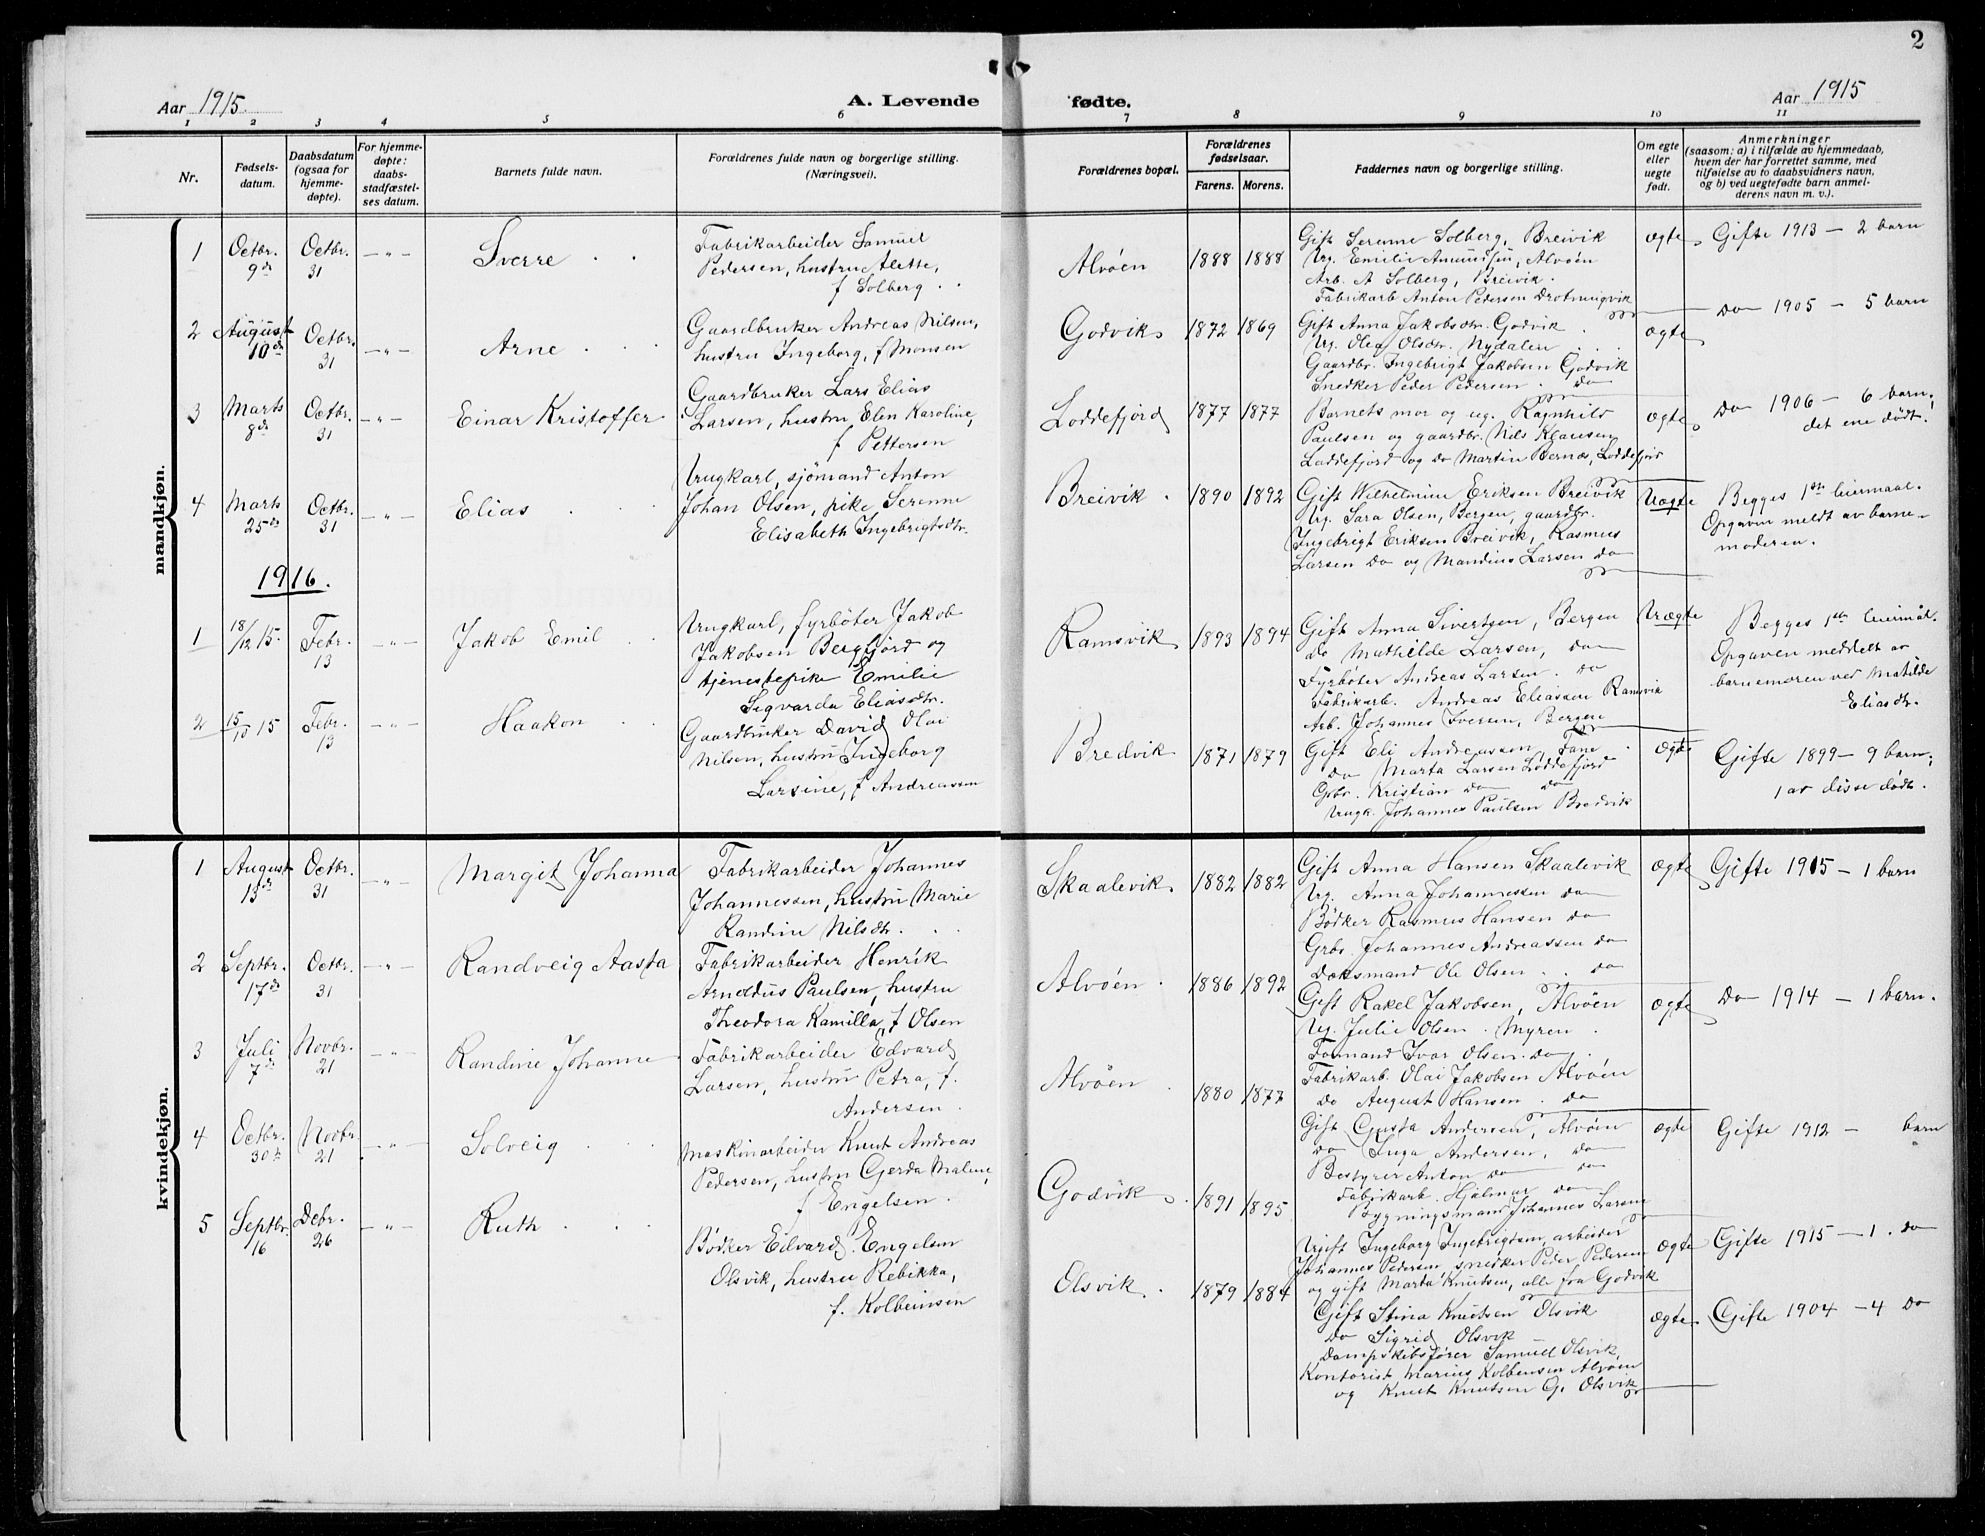 2
Aar 1915.
A. Levende
fødte.
Aar 1915
1 2 3 4 5 6 7 8 9 10 11
Nr.
Fødsels-
datum.
Daabsdatum
(ogsaa for
hjemme-
døpte).
For hjemme-
døpte:
daabs-
stadfæstel-
ses datum.
Barnets fulde navn.
Forældrenes fulde navn og borgerlige stilling.
(Næringsvei).
Forældrenes bopæl.
Forældrenes
fødselsaar.
Farens. Morens.
Faddernes navn og borgerlige stilling.
Om egte
eller
uegte
født.
Anmerkninger
(saasom: a) i tilfælde av hjemmedaab,
hvem der har forrettet samme, med
tilføielse av to daabsvidners navn,
og b) ved uegtefødte barn anmel-
derens navn m. v.).
mandkjøn.
1 Octbr. 9de Octbr. 31 -"- Sverre
Fabrikarbeider Samuel
Pedersen, hustru Alette,
f Solberg
Alvöen 1888 1888
Gift Serume Solberg, Breivik
Ug. Emilie Amundsen, Alvöen
Arb. A Solberg, Breivik.
Fabrikarb Anton Pedersen Drotningvik
Ægte Gifte 1913 - 2 barn
2 August 10de Octbr. 31 -"- Arne
Gaardbruker Andreas Nilsen,
hustru Ingeborg, f Monsen
Godvik 1872 1869
Gift Anna Jakobsdtr. Godvik
Ug. Olea Olsdtr. Nydalen
Gaardbr. Ingebrigt Jakobsen Godvik
Snedker Peder Pedersen . do
Ægte Do 1905 - 5 barn
3 Marts 8de Octbr. 31 -"- Einar Kristoffer
Gaardbruker Lars Elias
Larsen, hustru Elen Karoline,
f Pettersen
Loddefjord 1877 1877
Barnets mor og ug. Ragnhild
Paulsen og gaardbr. Nils Klausen
Loddefjord og do Martin Bernes, Loddefjord
Ægte Do 1906 - 6 barn,
det ene dödt.
4 Marts 25de Octbr. 31 -"- Elias
Ungkarl, sjömand Anton
Johan Olsen, pike Serenne
Elisabeth Ingebrigtsdtr.
Breivik 1890 1892
Gift Wilhelmine Eriksen Breivik
Ug. Sara Olsen, Bergen, gaardbr.
Ingebrigt Eriksen Breivik, Rasmus
Larsen do og Mandius Larsen do
Uægte Begges 1ste leiermaal.
Opgaven meldt av barne-
moderen.
1916.
1 18/12 15. Febr. 13 -"- Jakob Emil
Ungkarl, fyrböter Jakob
Jakobsen Bergfjord og
tjenestepike Emilie
Sigvarda Eliasdtr.
Ramsvik 1893 1894
Gift Anna Sivertsen, Bergen
do Mathilde Larsen, do
Fyrböter Andreas Larsen . do
Fabrikarb. Andreas Eliassen Ramsvik
Arb. Johannes Iversen, Bergen
Uægte Begges 1ste leiermål.
Opgaven meddelt av
barnemoren ved Matilde
Eliasdtr.
2 15/10 15 Febr. 13 -"- Haakon
Gaardbruker David Olai
Nilsen, hustru Ingeborg
Larsine, f Andreassen
Bredvik 1871 1879
Gift Eli Andreassen, Fane
do Marta Larsen Loddefjord
Grbr. Kristian do do
Ungk. Johannes Paulsen Bredvik
Ægte Gifte 1899 - 9 barn;
1 av disse dödt.
kvindekjøn.
1 August 13de Octbr. 31 -"- Margit Johanna
Fabrikarbeider Johannes
Johannessen, hustru Marie
Randine Nilsdtr.
Skaalevik 1882 1882
Gift Anna Hansen Skaalevik
Ug. Anna Johannessen do
Bödker Rasmus Hansen do
Grbr. Johannes Andreassen do
Dæksmand Ole Olsen . . do
Ægte Gifte 1915 - 1 barn
2 Septbr. 17de Octbr. 31 -"- Randveig Aasta
Fabrikarbeider Henrik
Arnoldus Paulsen, hustru
Theodora Kamilla, f Olsen
Alvöen 1886 1892
Gift Rakel Jakobsen, Alvöen
Ug. Julie Olsen . Myren
Formand Ivar Olsen do
Fabrikarb. Olai Jakobsen Alvöen
Do August Hansen . do
Ægte Do 1914 - 1 barn.
3 Juli 7de Novbr. 21 -"- Randine Johanne
Fabrikarbeider Edvard
Larsen, hustru Petra, f.
Andersen
Alvöen 1880 1877
Gift Gusta Andersen, Alvöen
do Inga Andersen, do
Bestyrer Anton do do
Fabrikarb. Hjalmar do
Bygningsmand Johannes Larsen
Ægte Gifte 1912 - barn
4 Octbr. 30te Novbr. 21 -"- Solveig
Maskinarbeider Knut Andreas
Pedersen, hustru Gerda Malene,
f Engelsen
Godvik 1891 1895
Ugift Ingeborg Ingebrigtsen, arbeider
Johannes Pedersen, snedker Peder Pedersen
og gift Marta Knutsen, alle fra Godvik
Ægte Gifte 1915 - 1 . do
5 Septbr. 16 Debr. 26 -"- Ruth
Bödker Edvard Engelsen
Olsvik, hustru Rebikka,
f. Kolbeinsen
Olsvik 1879 1884
Gift Stina Knutsen Olsvik
Do Sigrid Olsvik
Dampskibsförer Samuel Olsvik,
Kontorist Marius Kolbensen Alvöen
og Knut Knutsen G. Olsvik
Ægte Gifte 1904 - 4 do